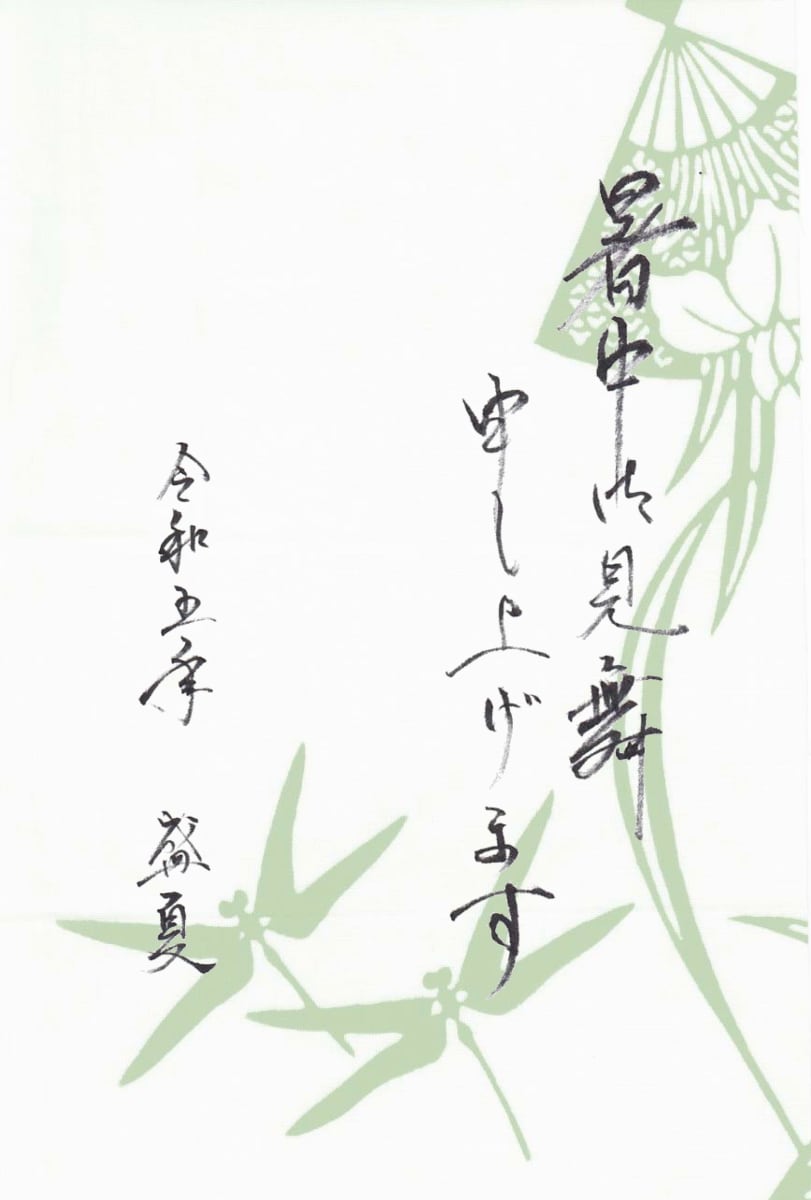 暑中御見舞
申し上げます
令和五年 盛夏